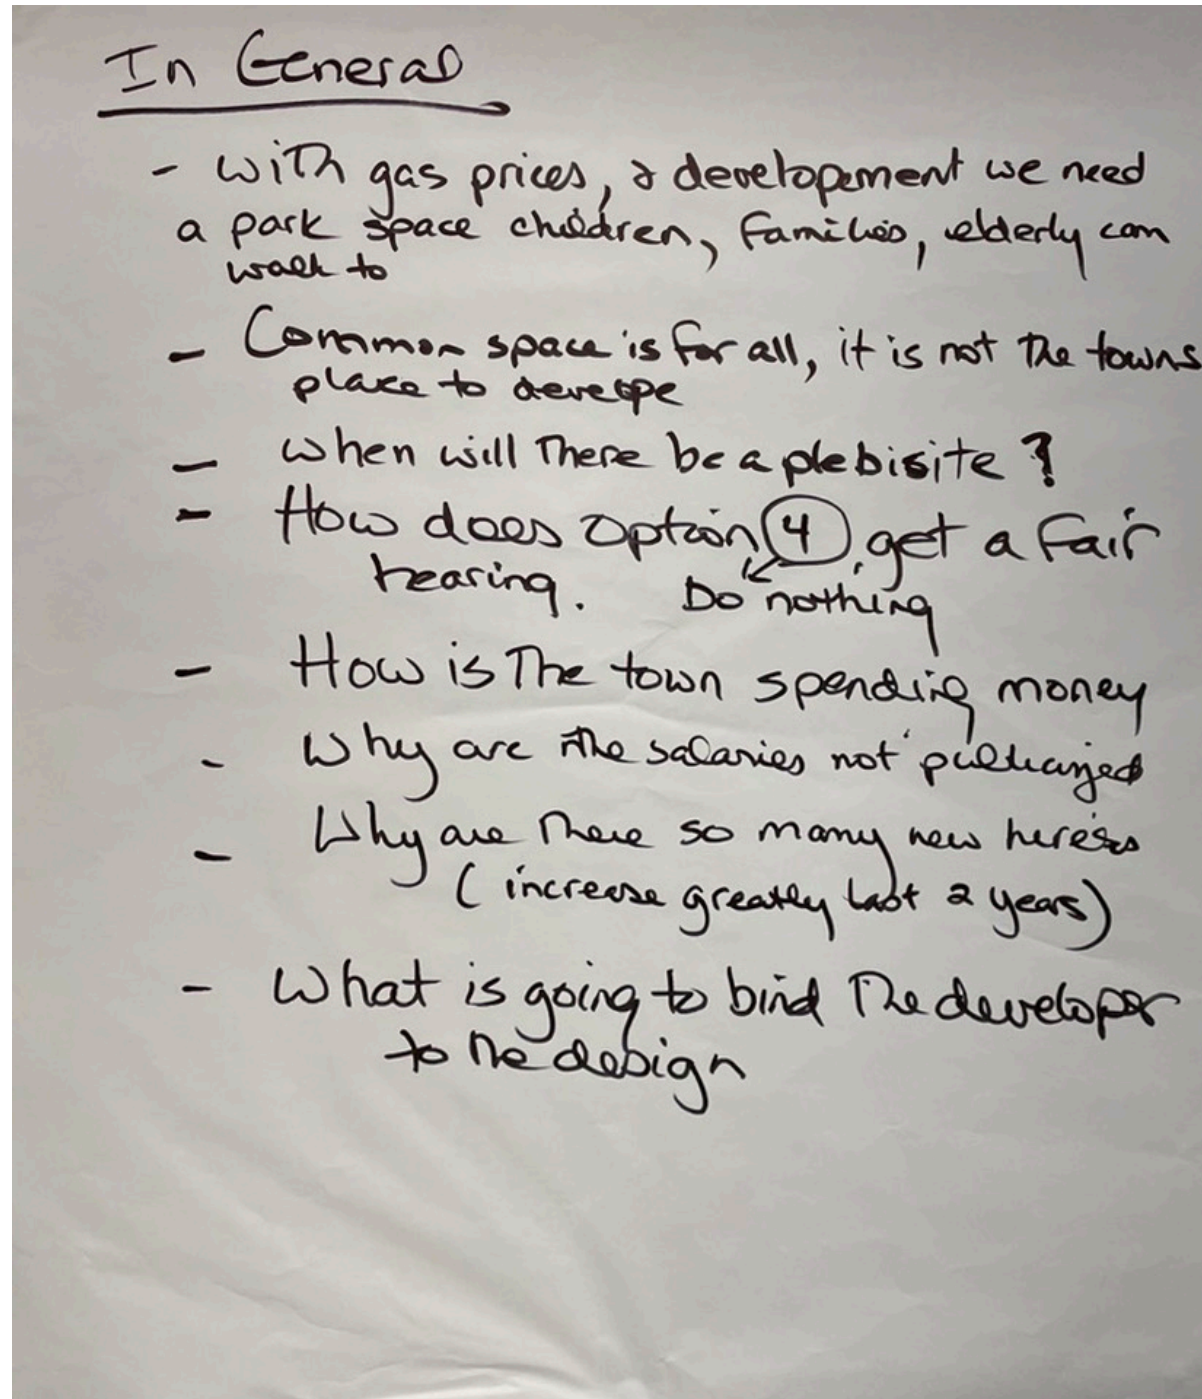 In General
- with gas prices, & developement we need
a park space children, families, elderly can
walk to
- Common space is for all, it is not the towns
place to develope
- when will there be a plebisite ?
- How does option 4 get a fair
hearing. Do nothing
- How is the town spending money
- Why are the salaries not
- Why are there so many new
( increase greatly last 2 years)
- What is going to bind the developer
to the design